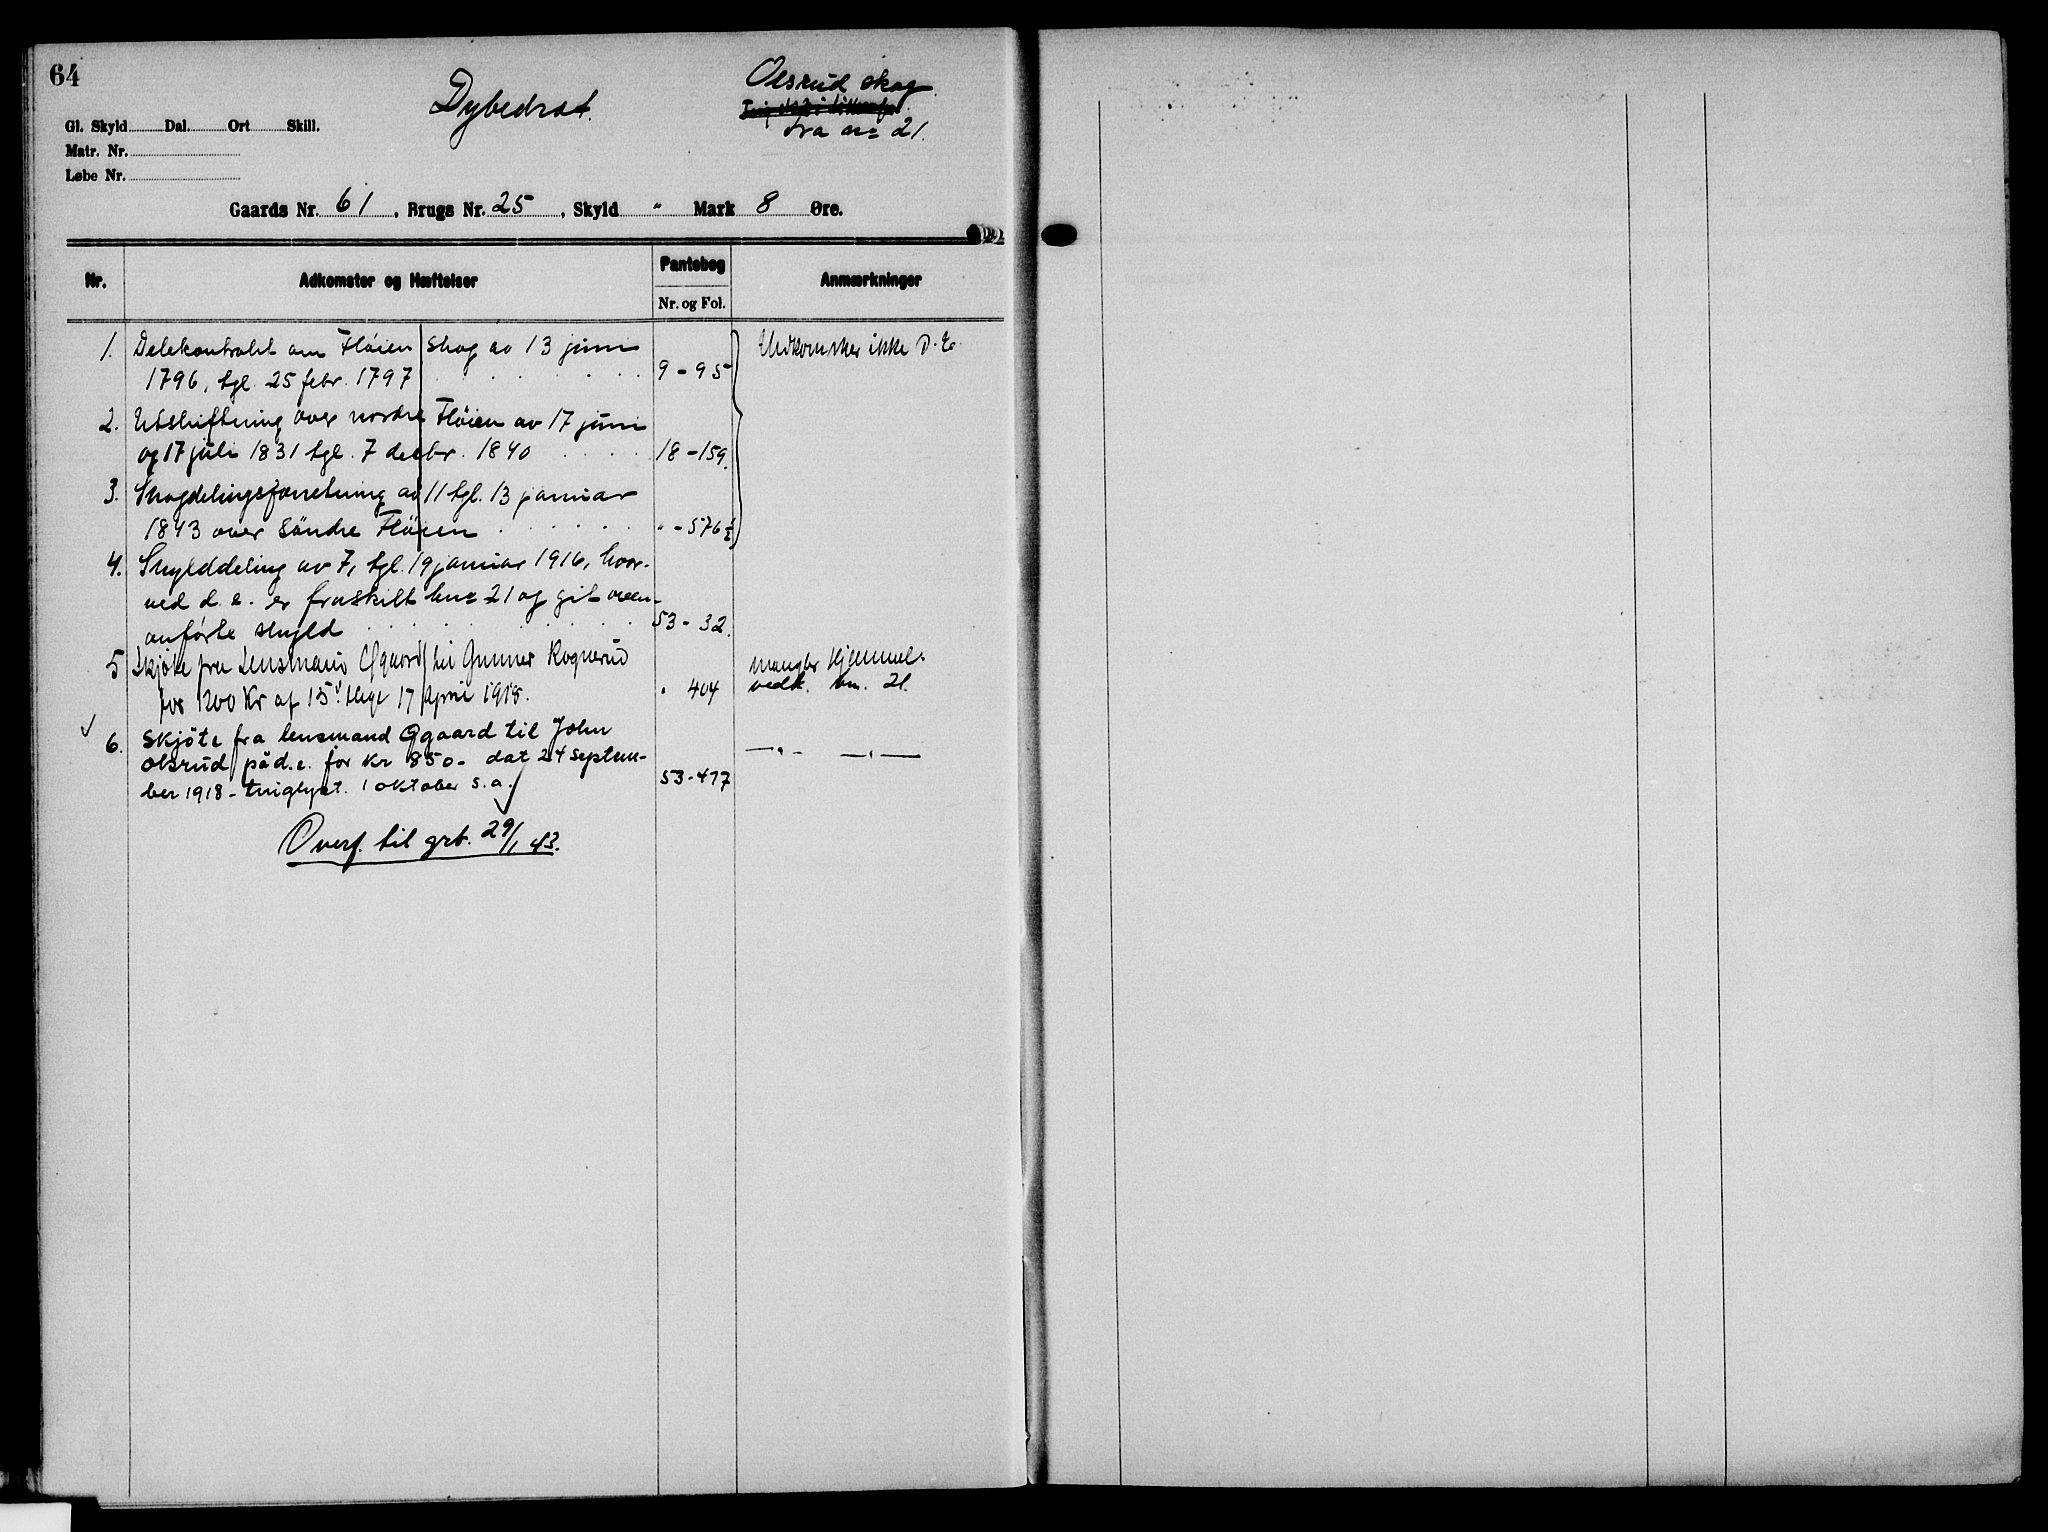 64
Dybedrat.
Olsrud skog
fra no 21.
Gl. Skyld Dal. Ort Skill.
Matr. Nr.
Løbe Nr.
Gaards Nr. 61, Brugs Nr. 25, Skyld " Mark 8 Øre.
Nr. Adkomster og Hæftelser Pantebog Anmærkninger
Nr. og Fol.
1. Delekontrakt om Fløien skog av 13 juni Vedkommer ikke D. E.
1796, tgl. 25 febr. 1797 9 - 95
2. Utskiftning over nordre Fløien av 17 juni
og 17 juli 1831 tgl. 7 decbr. 1840 18 - 159.
3. Skogdelingsforretning av 11 tgl. 13 januar
1843 over søndre Fløien " - 576½
4. Skylddeling av 7, tgl. 19 januar 1916, hvor-
ved d. e. er fraskilt bno 21 og git oven-
anførte skyld 53 - 32.
5 Skjøte fra Lensmand Øgaard til Gunner Rognerud mangler Hjemmel
for 1200 Kr af 15 tlyst 17 April 1918. " 404 vedk. bn. 21.
6. Skjøte fra lensmand Øgaard til John
Olsrud på d. e. for kr 850- dat 24 septem- —"— —"—
ber 1918 - tinglyst 1 oktober s. a. 53 - 477
Overf. til grb. 29/1 43.